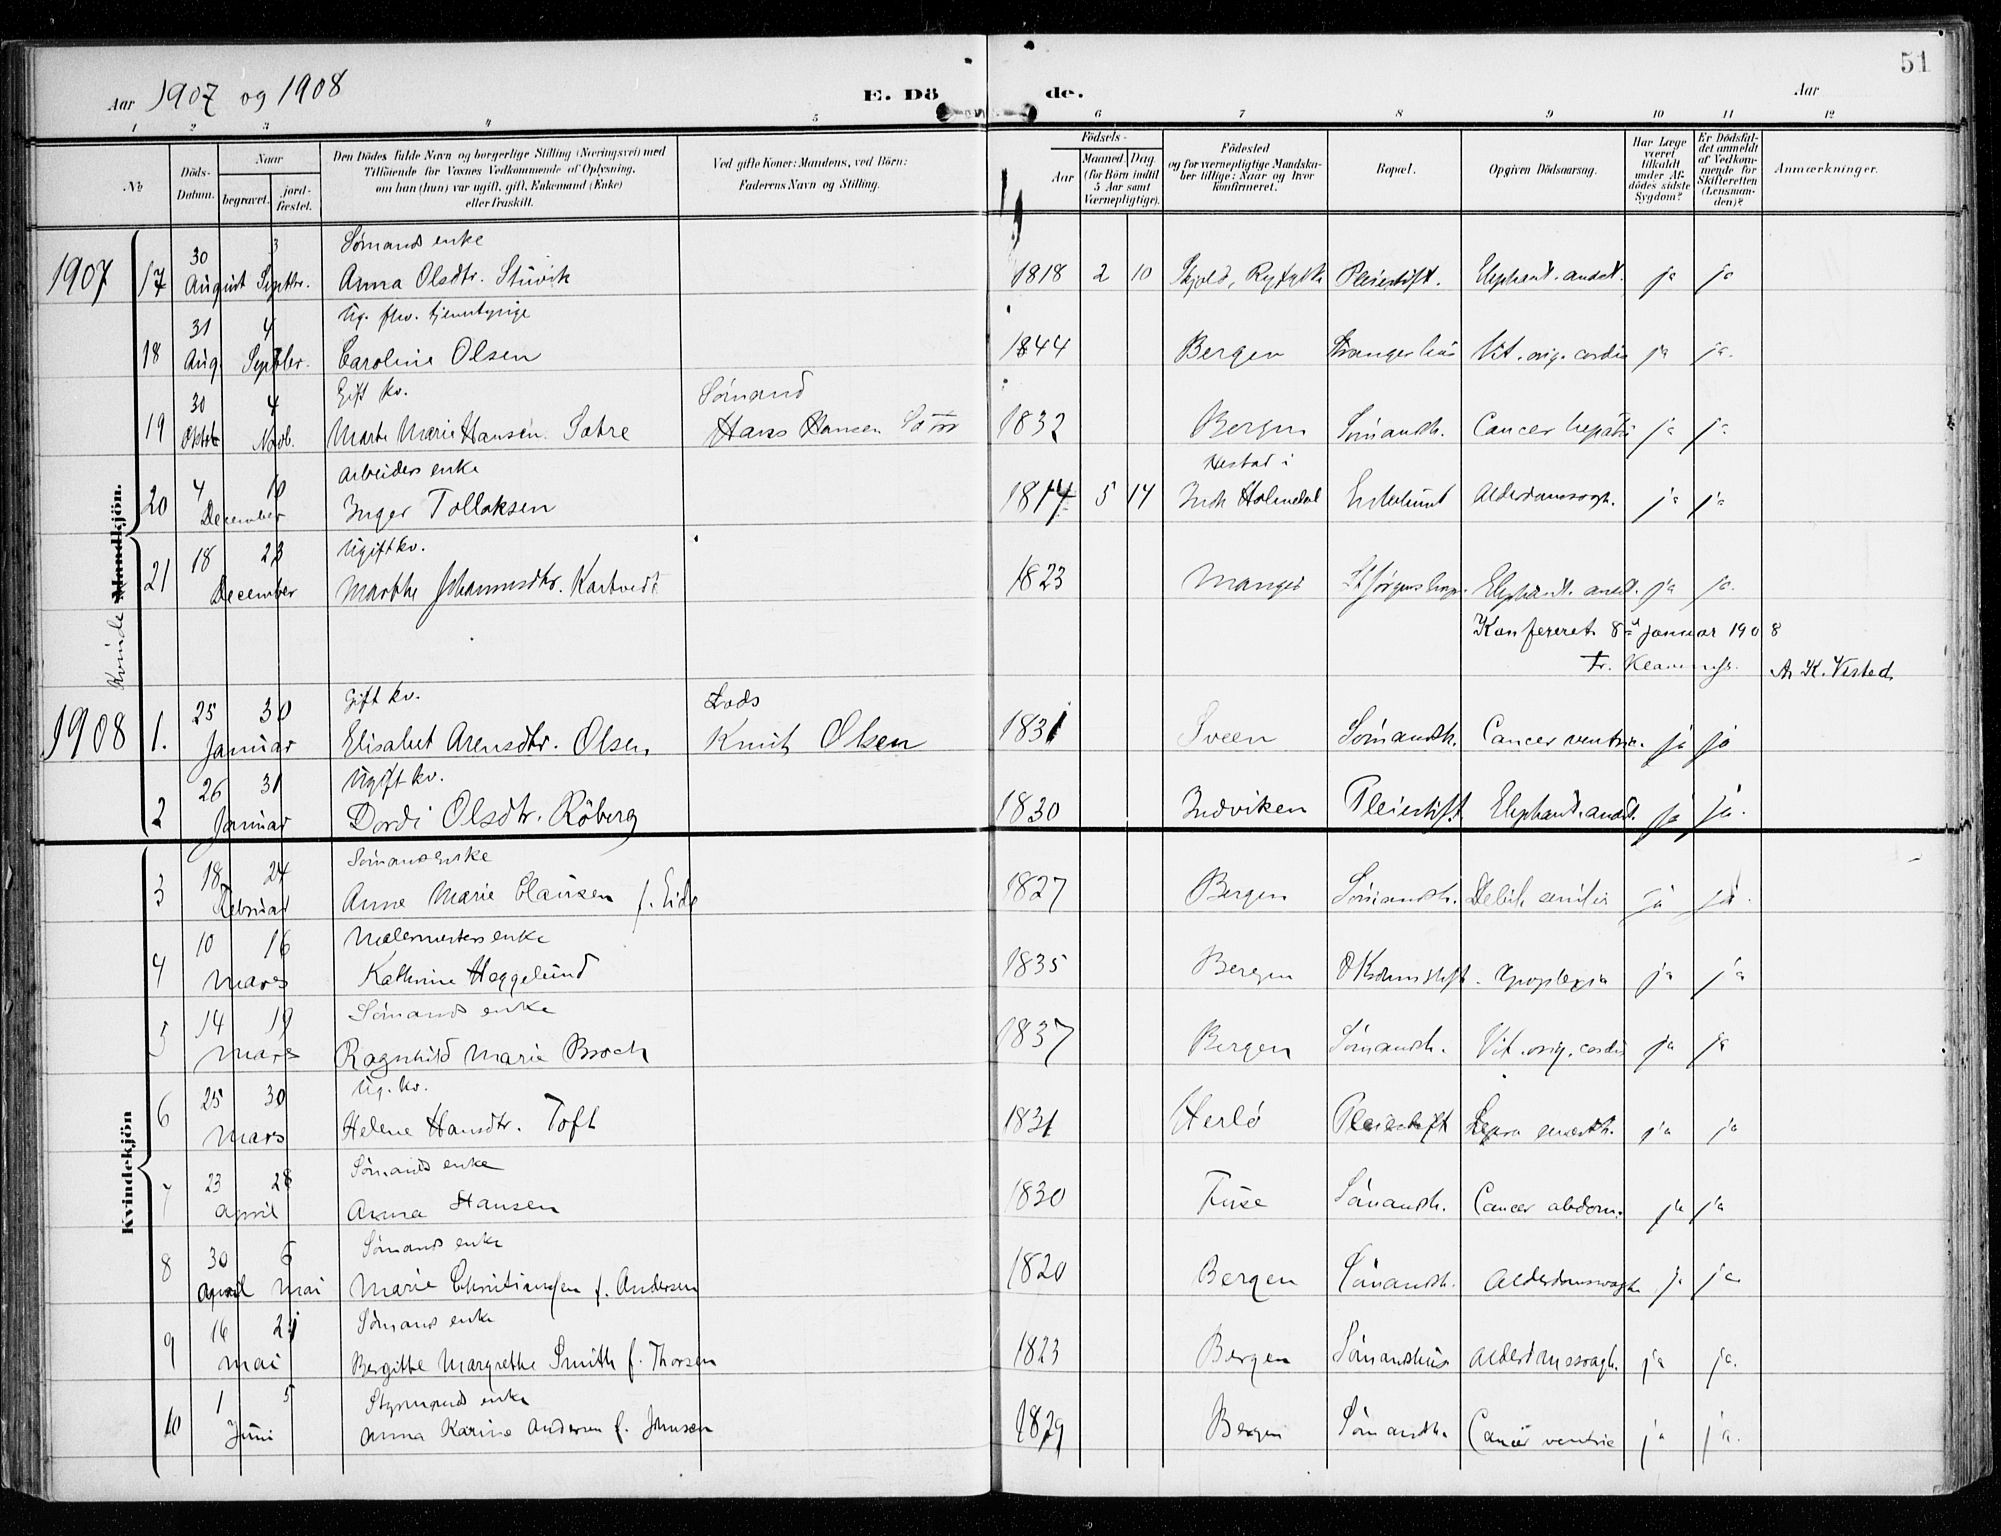 51
Aar 1907 og 1908
E. Dö de.
Aar
1 2 3 4 5 6 7 8 9 10 11 12
№
Döds-Datum.
Naar
begravet.
jordfæstet.
Den Dödes fulde Navn og borgerlige Stilling (Næringsvei) med Tilföiende for Voxnes Vedkommende af Oplysning, om han (hun) var ugift, gift, Enkemand (Enke) eller fraskilt.
Ved gifte Koner: Mandens, ved Börn: Faderens Navn og Stilling.
Födsels-
Aar
Maaned Dag
(for Börn indtil 5 Aar samt Værnepligtige).
Födested og for værnepligtige Mandskaber tillige: Naar og hvor konfirmeret.
Bopæl.
Opgiven Dödsaarsag.
Har Læge været tilkaldt under Afdödes sidste Sygdom?
Er Dödsfaldet anmeldt af Vedkommende for Skifteretten (Lensmanden)?
Anmærkninger.
Kvinde Mandkjön.
1907
17 30 August 3 Septbr. Sömands enke Anna Olsdtr. Stuvik 1818 2 10 Skjold, Ryfylke Pleiestift. Elephant. anæst. ja ja
18 31 Aug. 4 Septbr. Ug. fhv. tjenestepige Caroline Olsen 1844 Bergen Strangeshus Vit. org. cordis ja ja.
19 30 Oktob. 4 Novb. Gift kv. Marte Marie Hansen Sætre Sömand Hans Hansen 1832 Bergen Sömandsh. Cancer hepatis ja ja
20 4 10 December Arbeiders enke Inger Tollaksen 1814 5 14 Indre Holmedal Alderdomssvagh. ja ja
21 18 23 December Ugift kv. Marthe Johannesdtr. Kartveit 1823 Manger St Jörgens Elephant. anæst. ja ja.
Konfereret 8de Januar 1908
Fr. Klaveness. K. Visted
1908
1. 25 30 Januar Gift kv. Elisabet Arensdtr. Olsen Lods Knut Olsen 1831 Sveen Sömandsh. Cancer ventric. ja ja
2 26 31 Januar Ugift kv. Dordi Olsdtr. Röberg 1830 Indviken Pleiestift Elephant. anæst. ja ja.
Kvindekjön
3 18 24 Februar Sömands enke Anne Marie Hansen f. Eide 1827 Bergen Sömandsh. Debil. senilis ja ja.
4 10 16 Mars Malermesters enke Kathrine Heggelund 1835 Bergen O Ksdamstift. Apoplexia ja ja
5 14 19 Mars Sömands enke Ragnhild Marie Broch 1837 Bergen Sömandsh. Vit. org. cordis ja ja
6 25 30 Mars Ug. kv. Helene Hansdtr. Toft 1831 Herlö Pleiestift Lepra anæsth. ja ja
7 23 28 April Sömands enke Anna Hansen 1830 Fuse Sömandsh. Cancer abdom. ja ja
8 30 April 6 Mai Sömands enke Marie Christiansen f. Andersen 1820 Bergen Sömandsh. Alderdomssvagh. ja ja
9 16 21 Mai Sömands enke Bergitte Margrethe Smith f. Thorsen 1823 Bergen Sömandshus Alderdomssvagh. ja ja.
10 1 5 Juni Styrmands enke Anna Karine Andersen f. Johnsen 1829 Bergen Sömandsh. Cancer ventric ja ja.